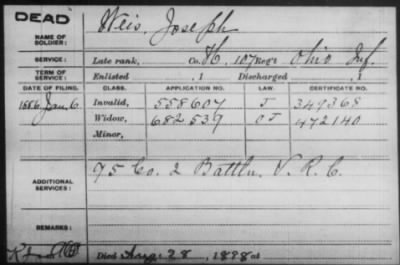 DEAD
NAME OF SOLDIER: Weis, Joseph
SERVICE: Late rank, Co. H, 107 Reg't Ohio Inf.
TERM OF SERVICE: Enlisted , 1 Discharged , 1
DATE OF FILING. CLASS. APPLICATION NO. LAW. CERTIFICATE NO.
1886 Jan. 6. Invalid, 558607 J 349368
Widow, 682539 O J 472140
Minor,
ADDITIONAL SERVICES: 75 Co. 2 Battln. V. R. C.
REMARKS:
Died Aug. 28, 1898 at